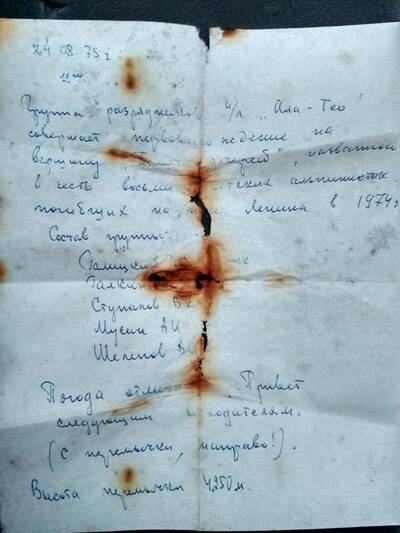 24 08 75 г
11 00
Группа разрядников а/л „Ала-Тоо"
совершает первовосхождение на
вершину , названной
в честь восьми советских альпинисток
погибших на Ленина в 1974 г
Состав группы:
Галицкий
Галкин
Ступаков В
Мусин АИ
Шепелов В
Погода отличная. Привет
следующим восходителям.
(С перемычки, направо!).
Высота перемычки 4250 м.